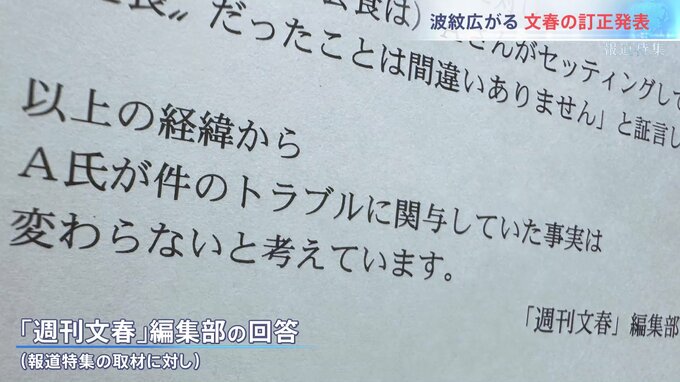 波紋広がる 文春の訂正発表
報道特集
だったことは間違いありません」と証言し
さんがセッティングして
以上の経緯から
A氏が件のトラブルに関与していた事実は
変わらないと考えています。
「週刊文春」編集部
「週刊文春」編集部の回答
(報道特集の取材に対し)